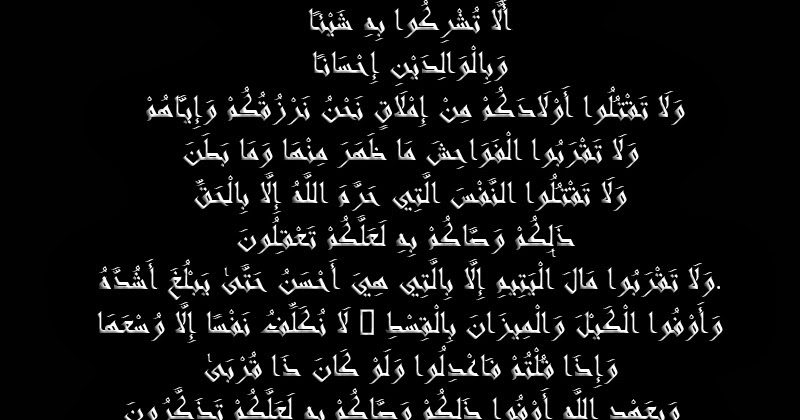 أَلَّا تُشْرِكُوا بِهِ شَيْئًا
وَبِالْوَالِدَيْنِ إِحْسَانًا
وَلَا تَقْتُلُوا أَوْلَادَكُمْ مِنْ إِمْلَاقٍ نَحْنُ نَرْزُقُكُمْ وَإِيَّاهُمْ
وَلَا تَقْرَبُوا الْفَوَاحِشَ مَا ظَهَرَ مِنْهَا وَمَا بَطَنَ
وَلَا تَقْتُلُوا النَّفْسَ الَّتِي حَرَّمَ اللَّهُ إِلَّا بِالْحَقِّ
ذَلِكُمْ وَصَّاكُمْ بِهِ لَعَلَّكُمْ تَعْقِلُونَ
.وَلَا تَقْرَبُوا مَالَ الْيَتِيمِ إِلَّا بِالَّتِي هِيَ أَحْسَنُ حَتَّىٰ يَبْلُغَ أَشُدَّهُ
وَأَوْفُوا الْكَيْلَ وَالْمِيزَانَ بِالْقِسْطِ لَا نُكَلِّفُ نَفْسًا إِلَّا وُسْعَهَا
وَإِذَا قُلْتُمْ فَاعْدِلُوا وَلَوْ كَانَ ذَا قُرْبَىٰ
وَبِعَهْدِ اللَّهِ أَوْفُوا ذَلِكُمْ وَصَّاكُمْ بِهِ لَعَلَّكُمْ تَذَكَّرُونَ